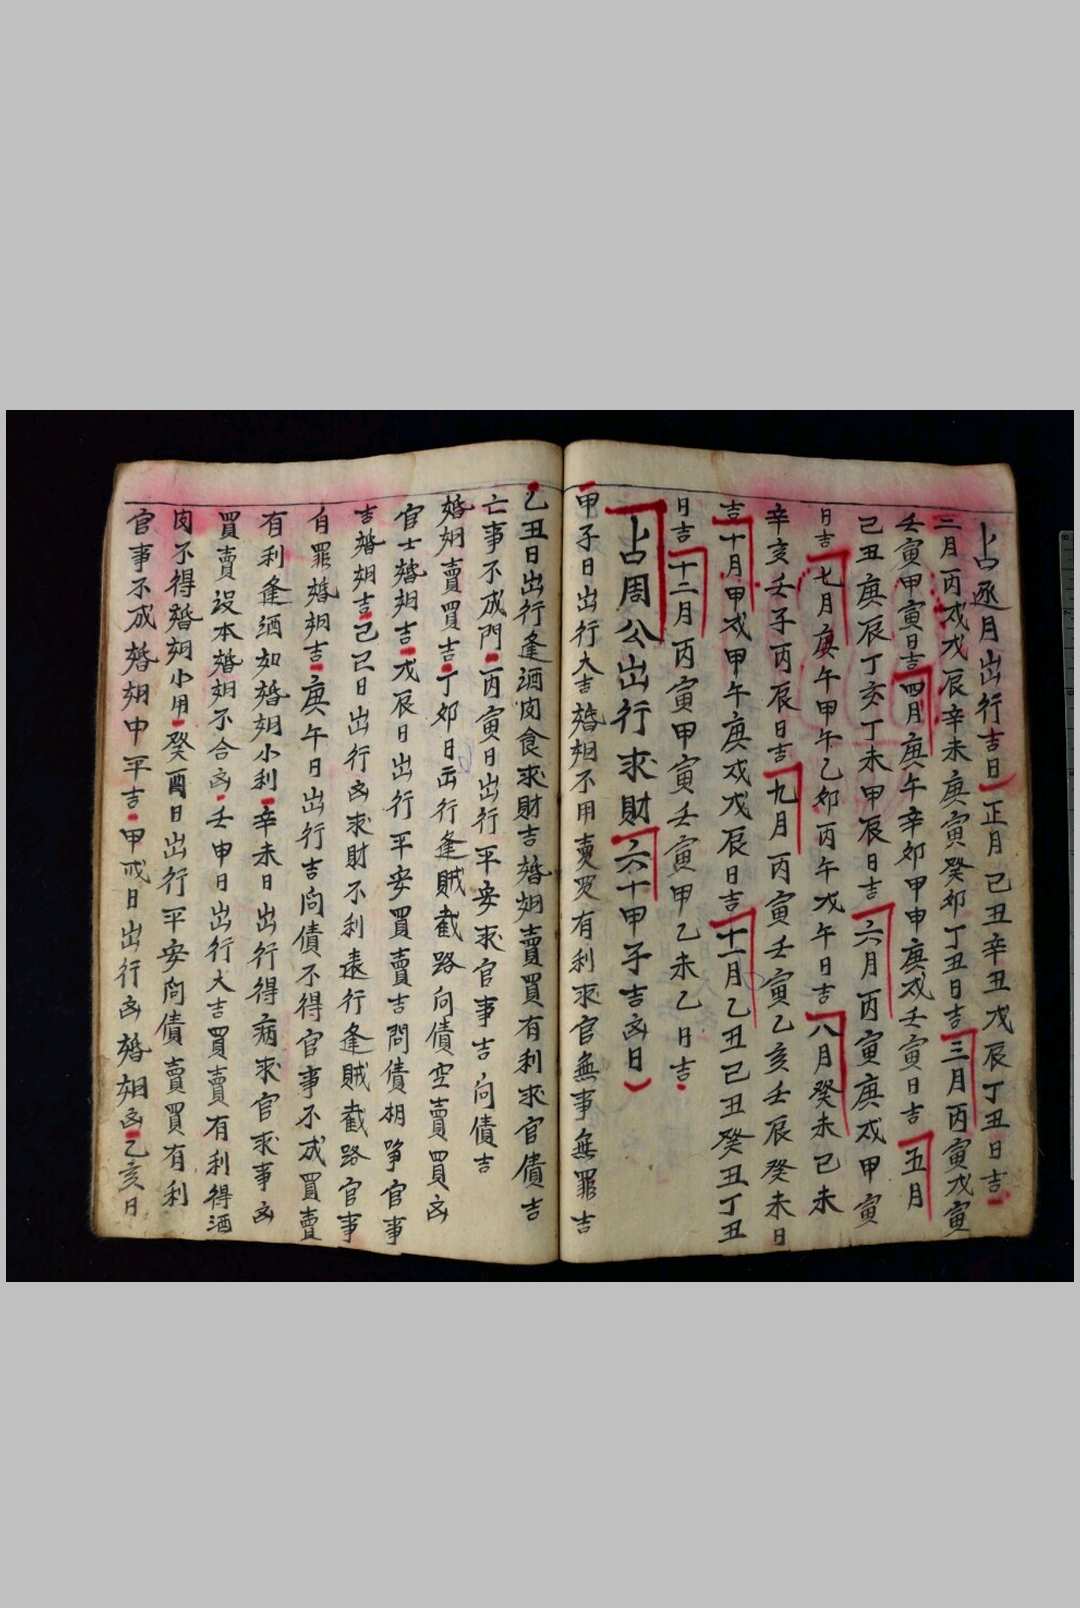 占逐月出行吉日正月己丑辛丑戊辰丁丑日吉
二月丙戌戊辰辛未庚寅癸卯丁丑日吉三月丙寅戊寅
壬寅甲寅日吉四月庚午辛卯甲申庚戌壬寅日吉五月
己丑庚辰丁亥丁未甲辰日吉六月丙寅庚戌甲寅
日吉七月庚午甲午乙卯丙午戊午日吉八月癸未己未
辛亥壬子丙辰日吉九月丙寅壬寅乙亥壬辰癸未日
吉十月甲戌甲午庚戌戊辰日吉十一月乙丑己丑癸丑丁丑
日吉十二月丙寅甲寅壬寅甲乙未乙日吉
占周公出行求財六十甲子吉凶日
甲子日出行大吉婚姻不用賣買有利求官無事無罪吉
乙丑日出行逢酒肉食求財吉婚姻賣買有利求官債吉
亡事不成門丙寅日出行平安求官事吉向債吉
婚姻賣買吉丁卯日出行逢賊截路向債空賣買凶
官士婚姻吉戊辰日出行平安買賣吉問債相爭官事
吉婚姻吉己巳日出行凶求財不利遠行逢賊截路官事
自罪婚姻吉庚午日出行吉向債不得官事不成買賣
有利逢酒如婚姻小利辛未日出行得病求官求事凶
買賣設本婚姻不合凶壬申日出行大吉買賣有利得酒
肉不得婚姻小用癸酉日出行平安向債賣買有利
官事不成婚姻中平吉甲戌日出行凶婚姻凶乙亥日